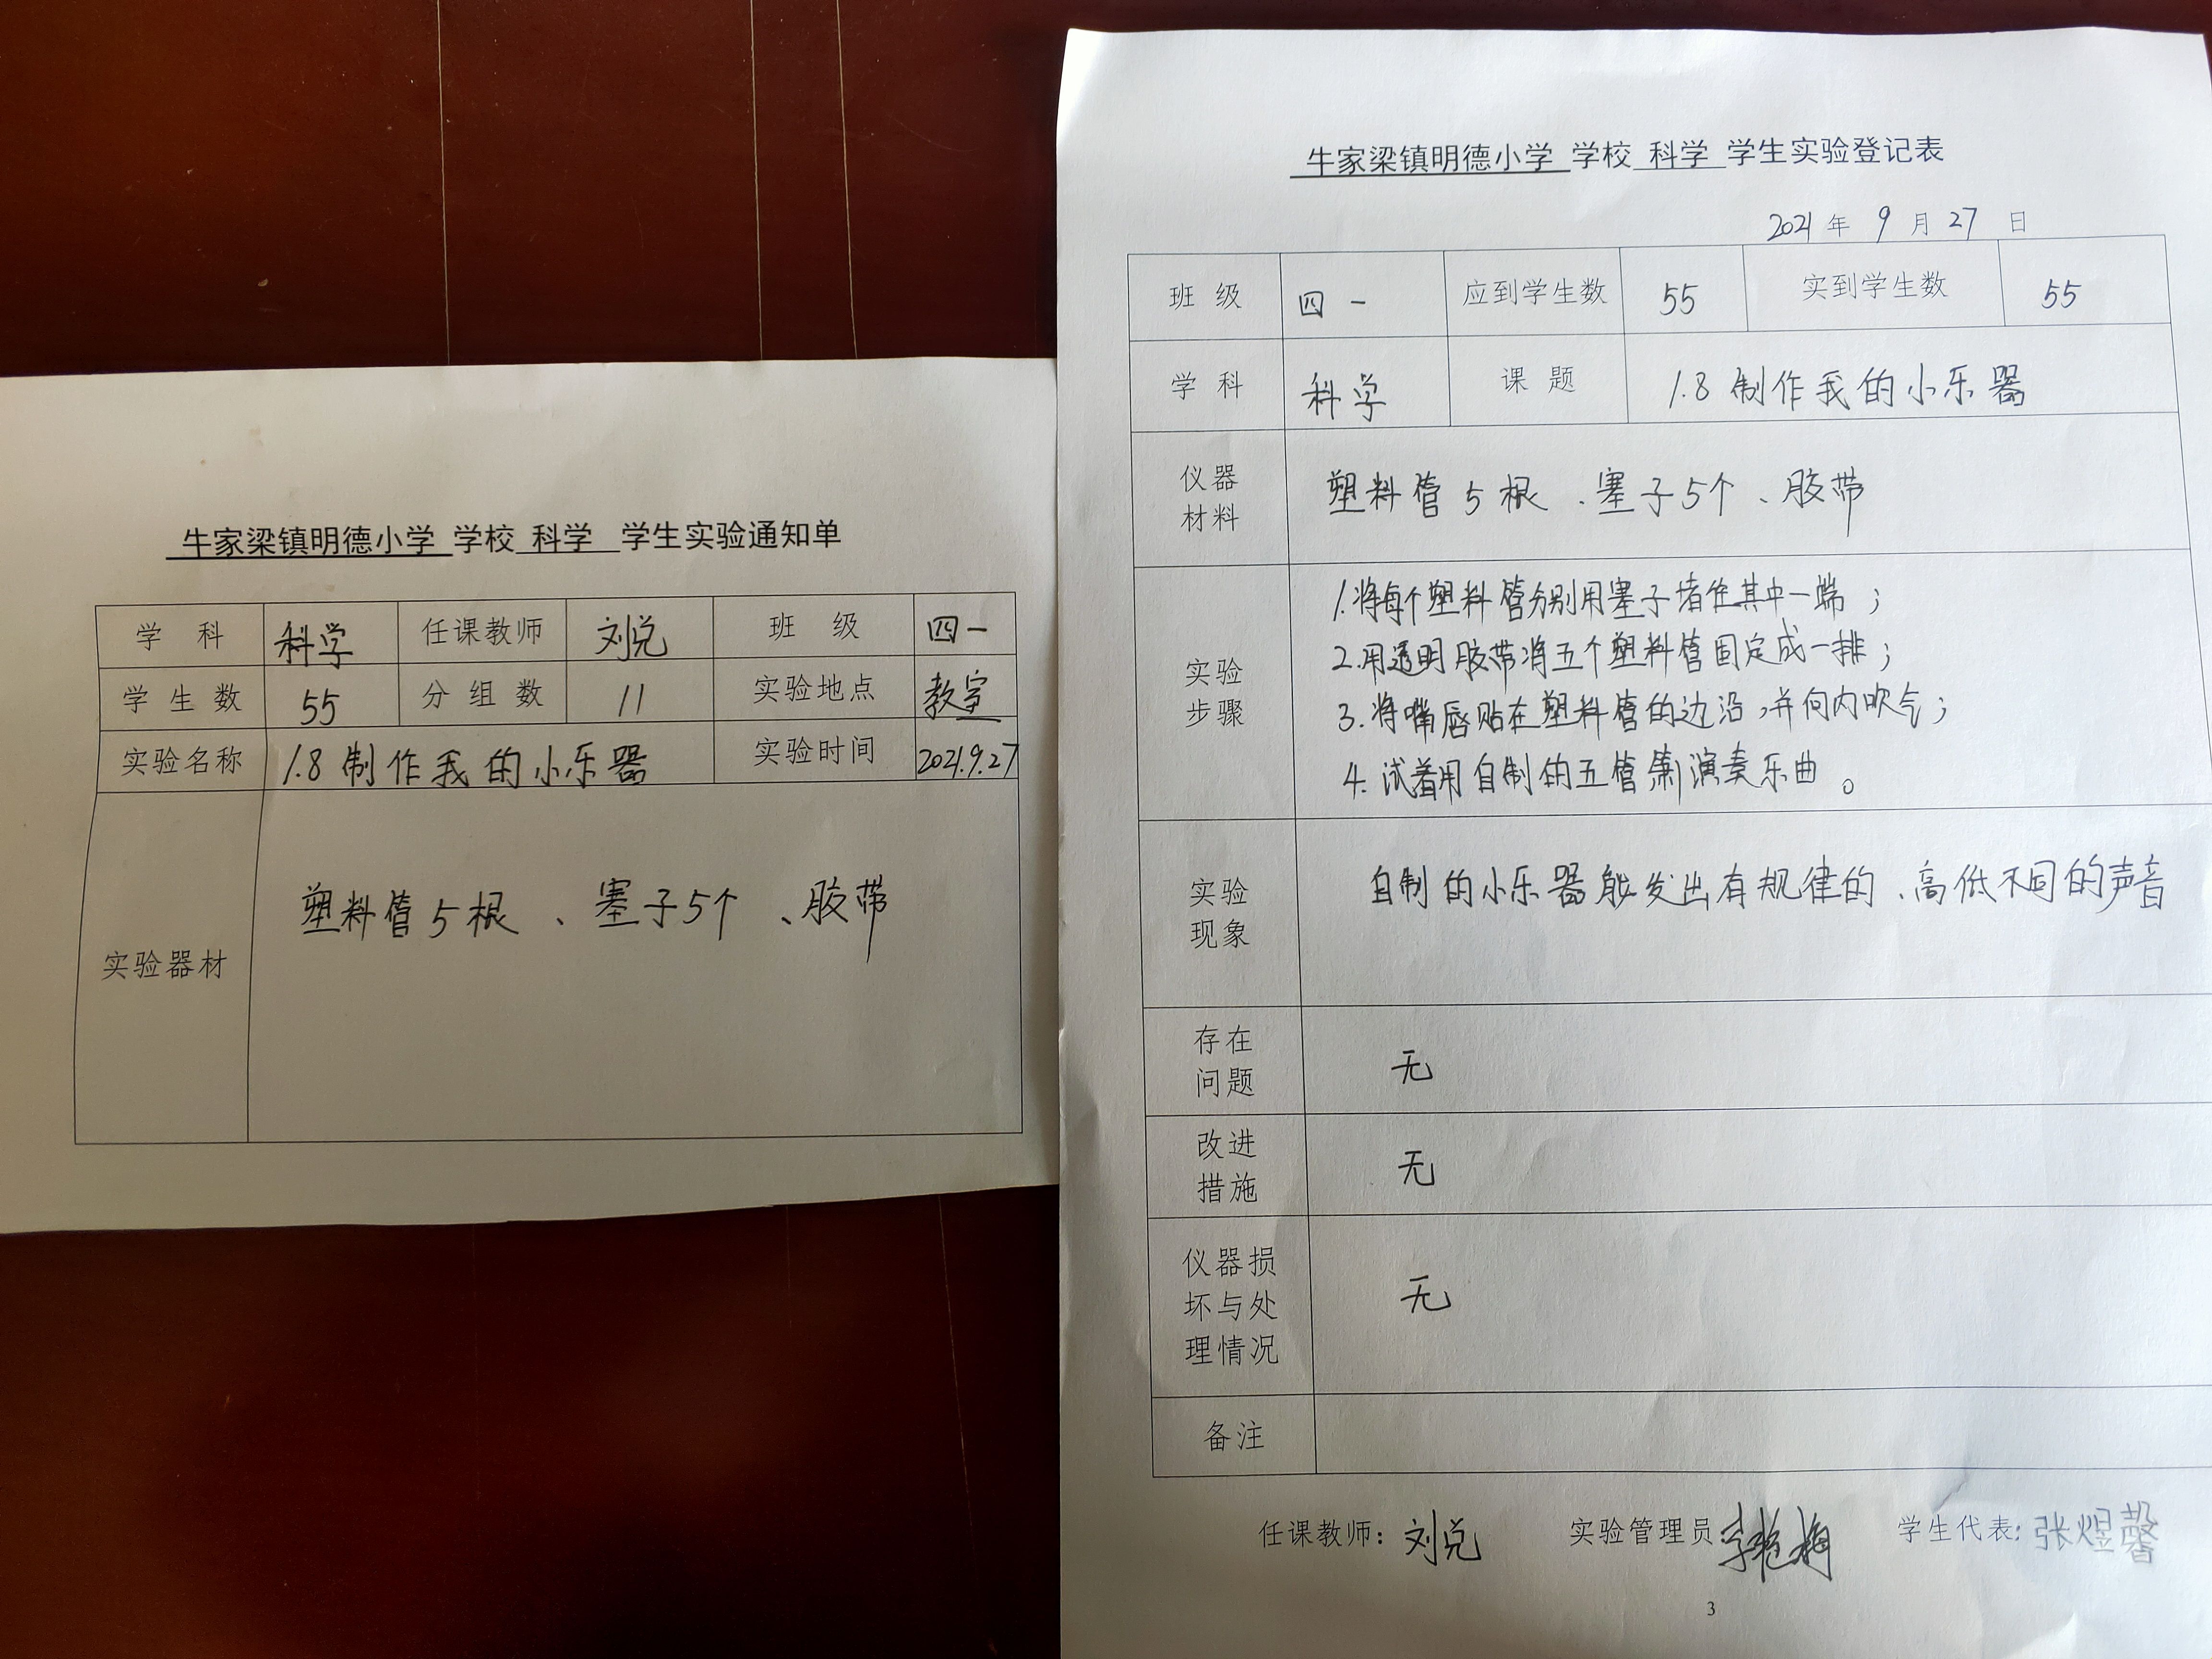 牛家梁镇明德小学 学校 科学 学生实验通知单
学 科 科学 任课教师 刘兑 班 级 四一
学 生 数 55 分 组 数 11 实验地点 教室
实验名称 1.8 制作我的小乐器 实验时间 2021.9.27
实验器材 塑料管5根、塞子5个、胶带
牛家梁镇明德小学 学校 科学 学生实验登记表
2021 年 9 月 27 日
班 级 四一 应到学生数 55 实到学生数 55
学 科 科学 课 题 1.8 制作我的小乐器
仪器
材料
塑料管5根、塞子5个、胶带
实验
步骤
1.将每个塑料管分别用塞子堵住其中一端；
2.用透明胶带将五个塑料管固定成一排；
3.将嘴唇贴在塑料管的边沿，并向内吹气；
4.试着用自制的五管箫演奏乐曲。
实验
现象
自制的小乐器能发出有规律的、高低不同的声音
存在
问题
无
改进
措施
无
仪器损
坏与处
理情况
无
备注
任课教师：刘兑 实验管理员 学生代表：张煜馨
3